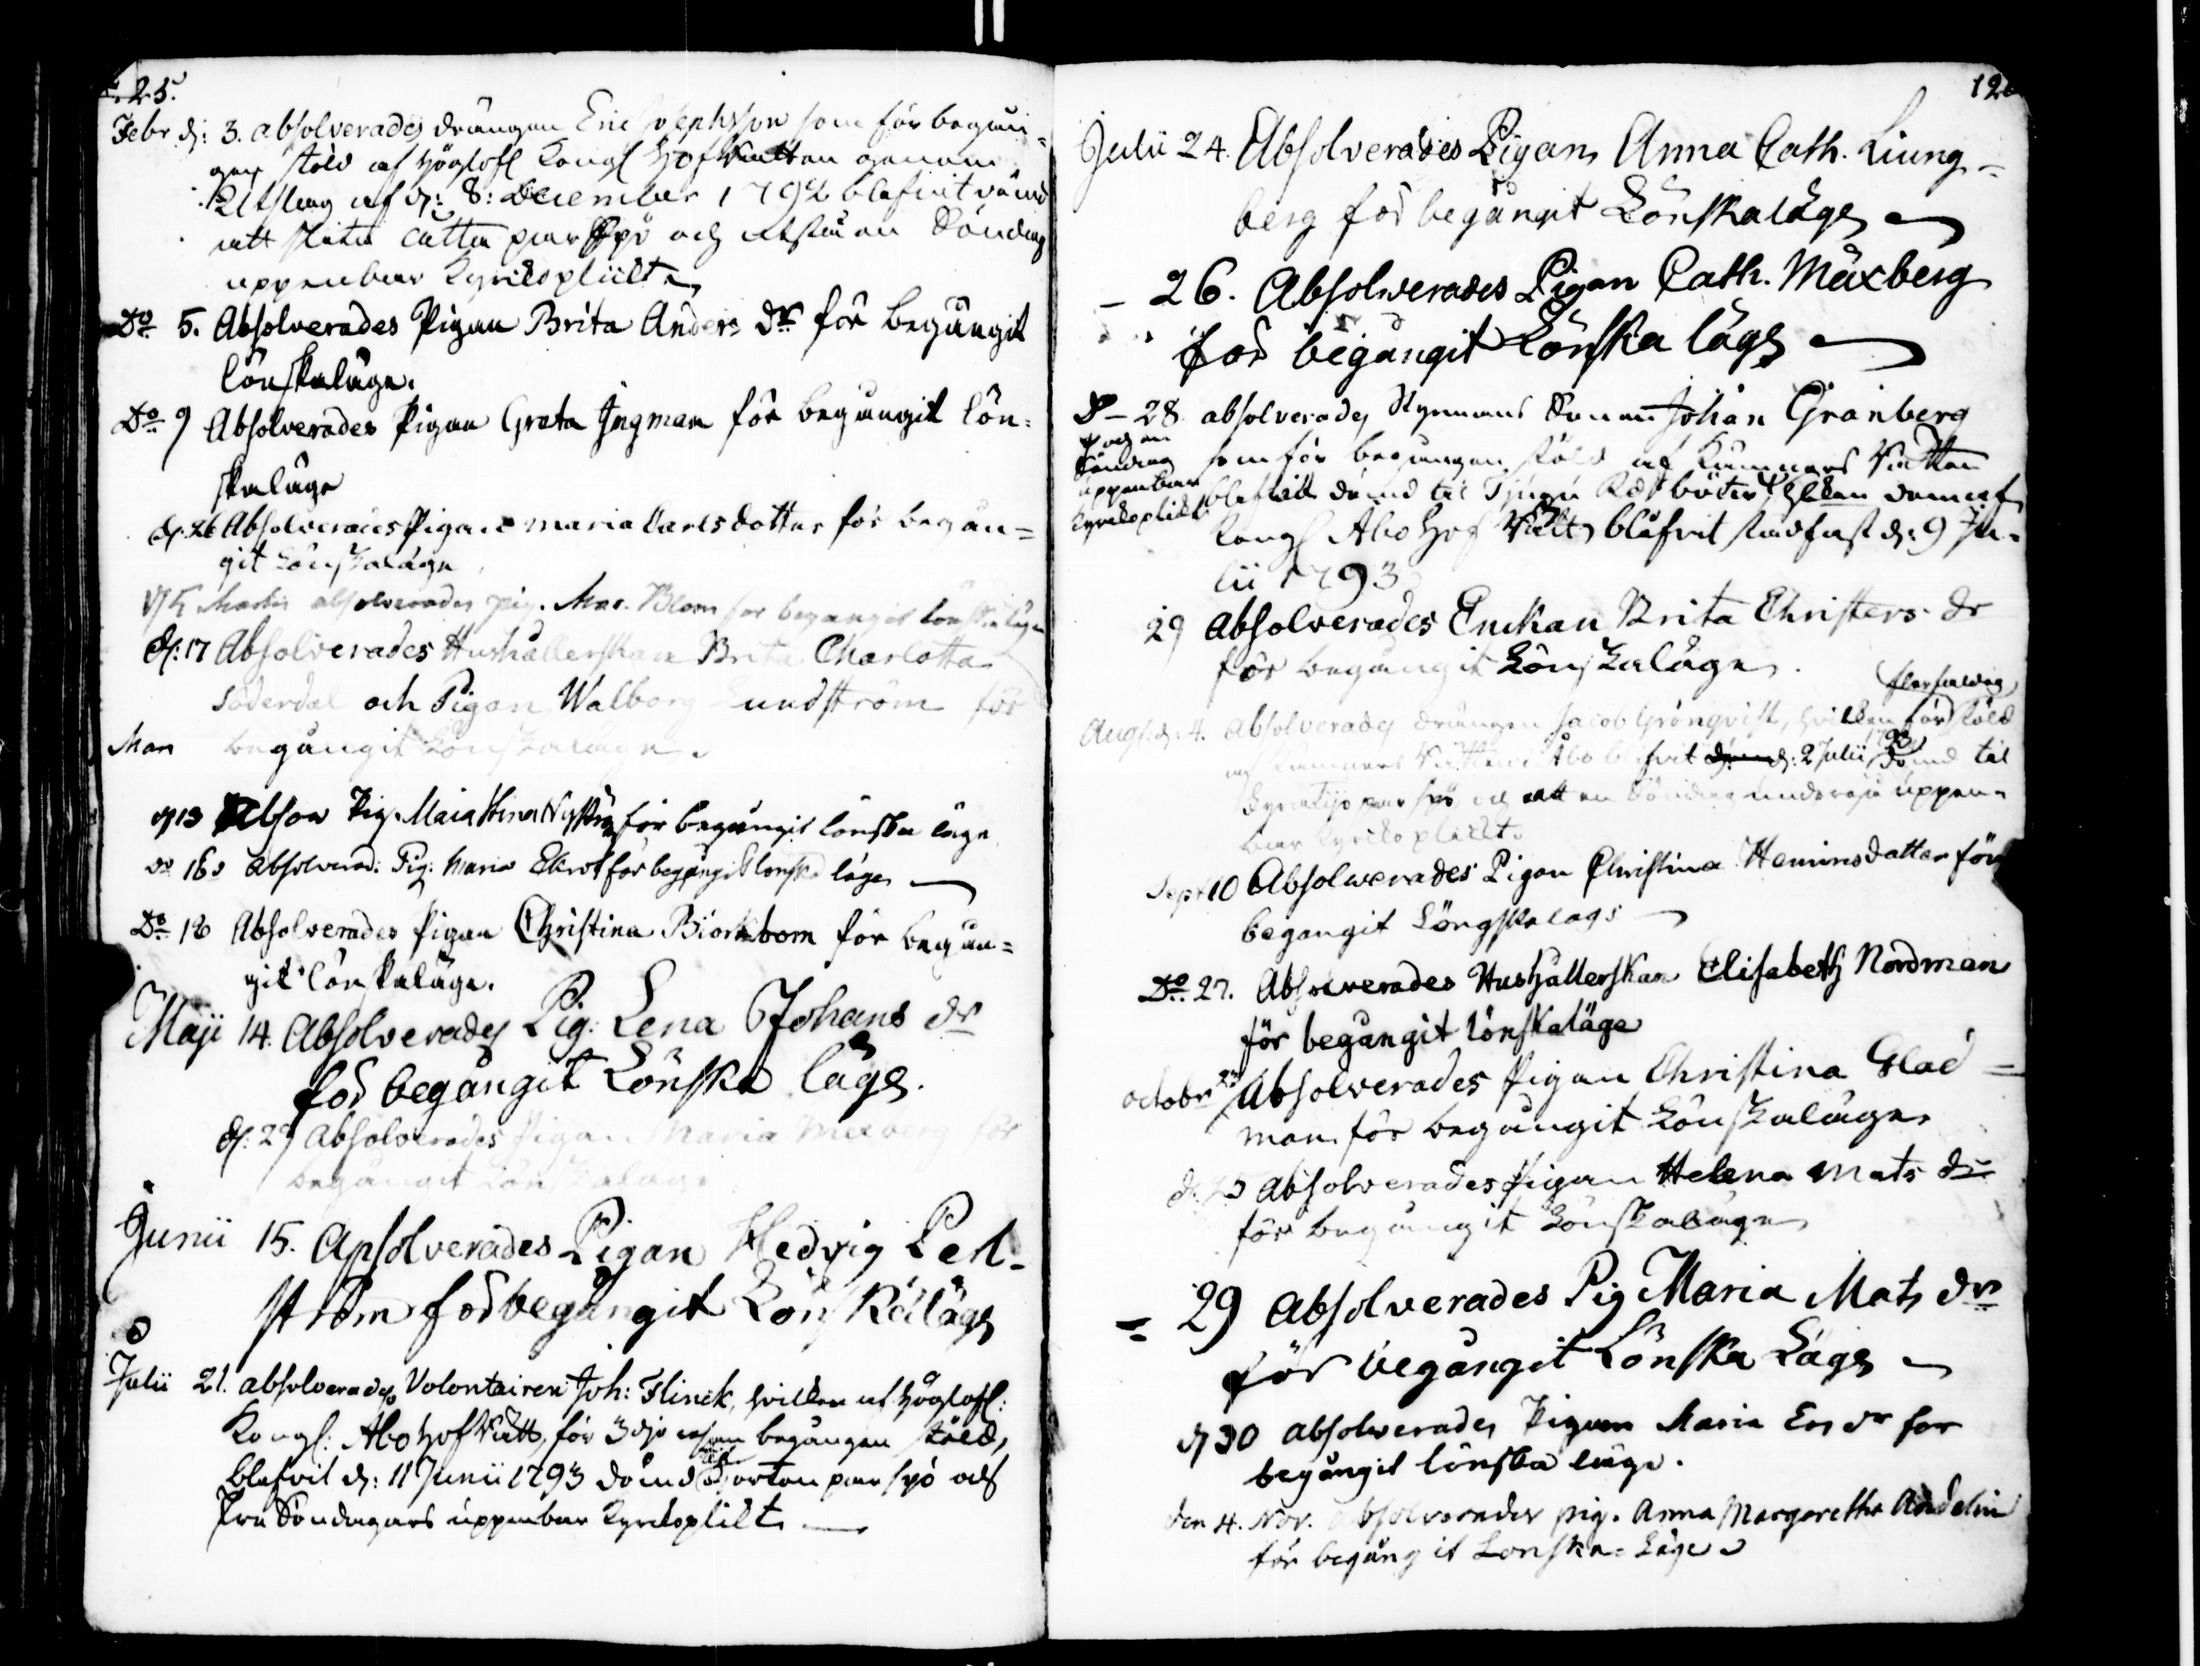 125.
Febr. d: 3. absolverades drängen Eric Josephsson som för begån-
gen stöld af Höglofl Kongl HofRätten genom
Utslag af d: 8: December 1792 blefwit dömd
att slita otta par Spö och utstå en Söndag
uppenbar Kyrkoplickt
Do 5. Absolverades Pigan Brita Anders Dr för begångit
lönskaläge.
Do 9 Absolverades Pigan Greta Ingman för begångit lön-
skaläge
d. 26 Absolverades Pigan Maria Carlsdotter för begån-
git Lönskaläge
Martii absolverades pig. Mar. Blom for begångit lönskaläge
d: 17 Absolverades Hushållerskan Brita Charlotta
Söderdal och Pigan Walborg Lundström för
begångit Lönskaläge.
d 13 Absow Pig. Maia Stina för begångit lönska läge
do 16 absolverad: Pig: Maria för begångit lönska läge
Do 18 Absolverades Pigan Christina Biörkbom för begån-
git lönskaläge.
Maji 14. Absolverades Pig: Lena Johans dr
för begångit Lönska läge.
d: 29 Absolverades Pigan Maria Mexberg för
begångit Lönskaläge
Junii 15. Apsolverades Pigan Hedvig Perl-
ström för begångit Lönskaläge
Julii 21. absolverades Volontairen Joh: Flinck, hvilken af Höglofl:
Kongl: Åbo HofRätt, för 3dje resan begången stöld,
blefvit d: 11 Junii 1793 dömd til fiorton par spö och
Tvu Söndagars uppenbar Kyrkoplickt
Julii 24. Absolverades Pigan Anna Cath. Liung-
berg för begångit Lönskaläge
- 26. Absolverades Pigan Cath. Mäxberg
för begångit Lönska läge
D - 28 absolverades Styrmans Sonen Johan Granberg
som för begången stöld af Kämners Rätten
blefvit dömd til Tjugu Rdr böter, hvilken dom af
och en
Söndag
uppenbar
Kyrkoplickt
Kongl Åbo Hof Rätt blifvit stadfäst d: 9 Ju-
lii 1793
29 Absolverades Enckan Brita Christers dr
för begångit Lönskaläge.
flerfaldig
Aug. d. 4. absolverades drängen Jacob Grönqvist, hvilken för stöld
af Kämners Rätten i Åbo blifvit d: 2 Julii 1793 dömd til
Fyratijo par spö och att en Söndag undergå uppen-
bar Kyrkoplickt.
Sept 10 Absolverades Pigan Christina Hemmsdotter för
begangit Löngskalags
Do 27. Absolverades Hushållerskan Elisabeth Nordman
för begångit lönskaläge
Octobr 23 Absolverades Pigan Christina Glad-
man för begångit Lönskaläge
Absolverades Pigan Helena Mats dr
för begångit Lönskaläge
= 29 Absolverades Pig Maria Mats dr
för begångit Lönska Läge
d 30 absolverades Pigan Maria Ers dr för
begångit lönska läge.
den 4. Nov. Absolverades pig. Anna Margaretha Andelin
för begångit Lönska-Läge